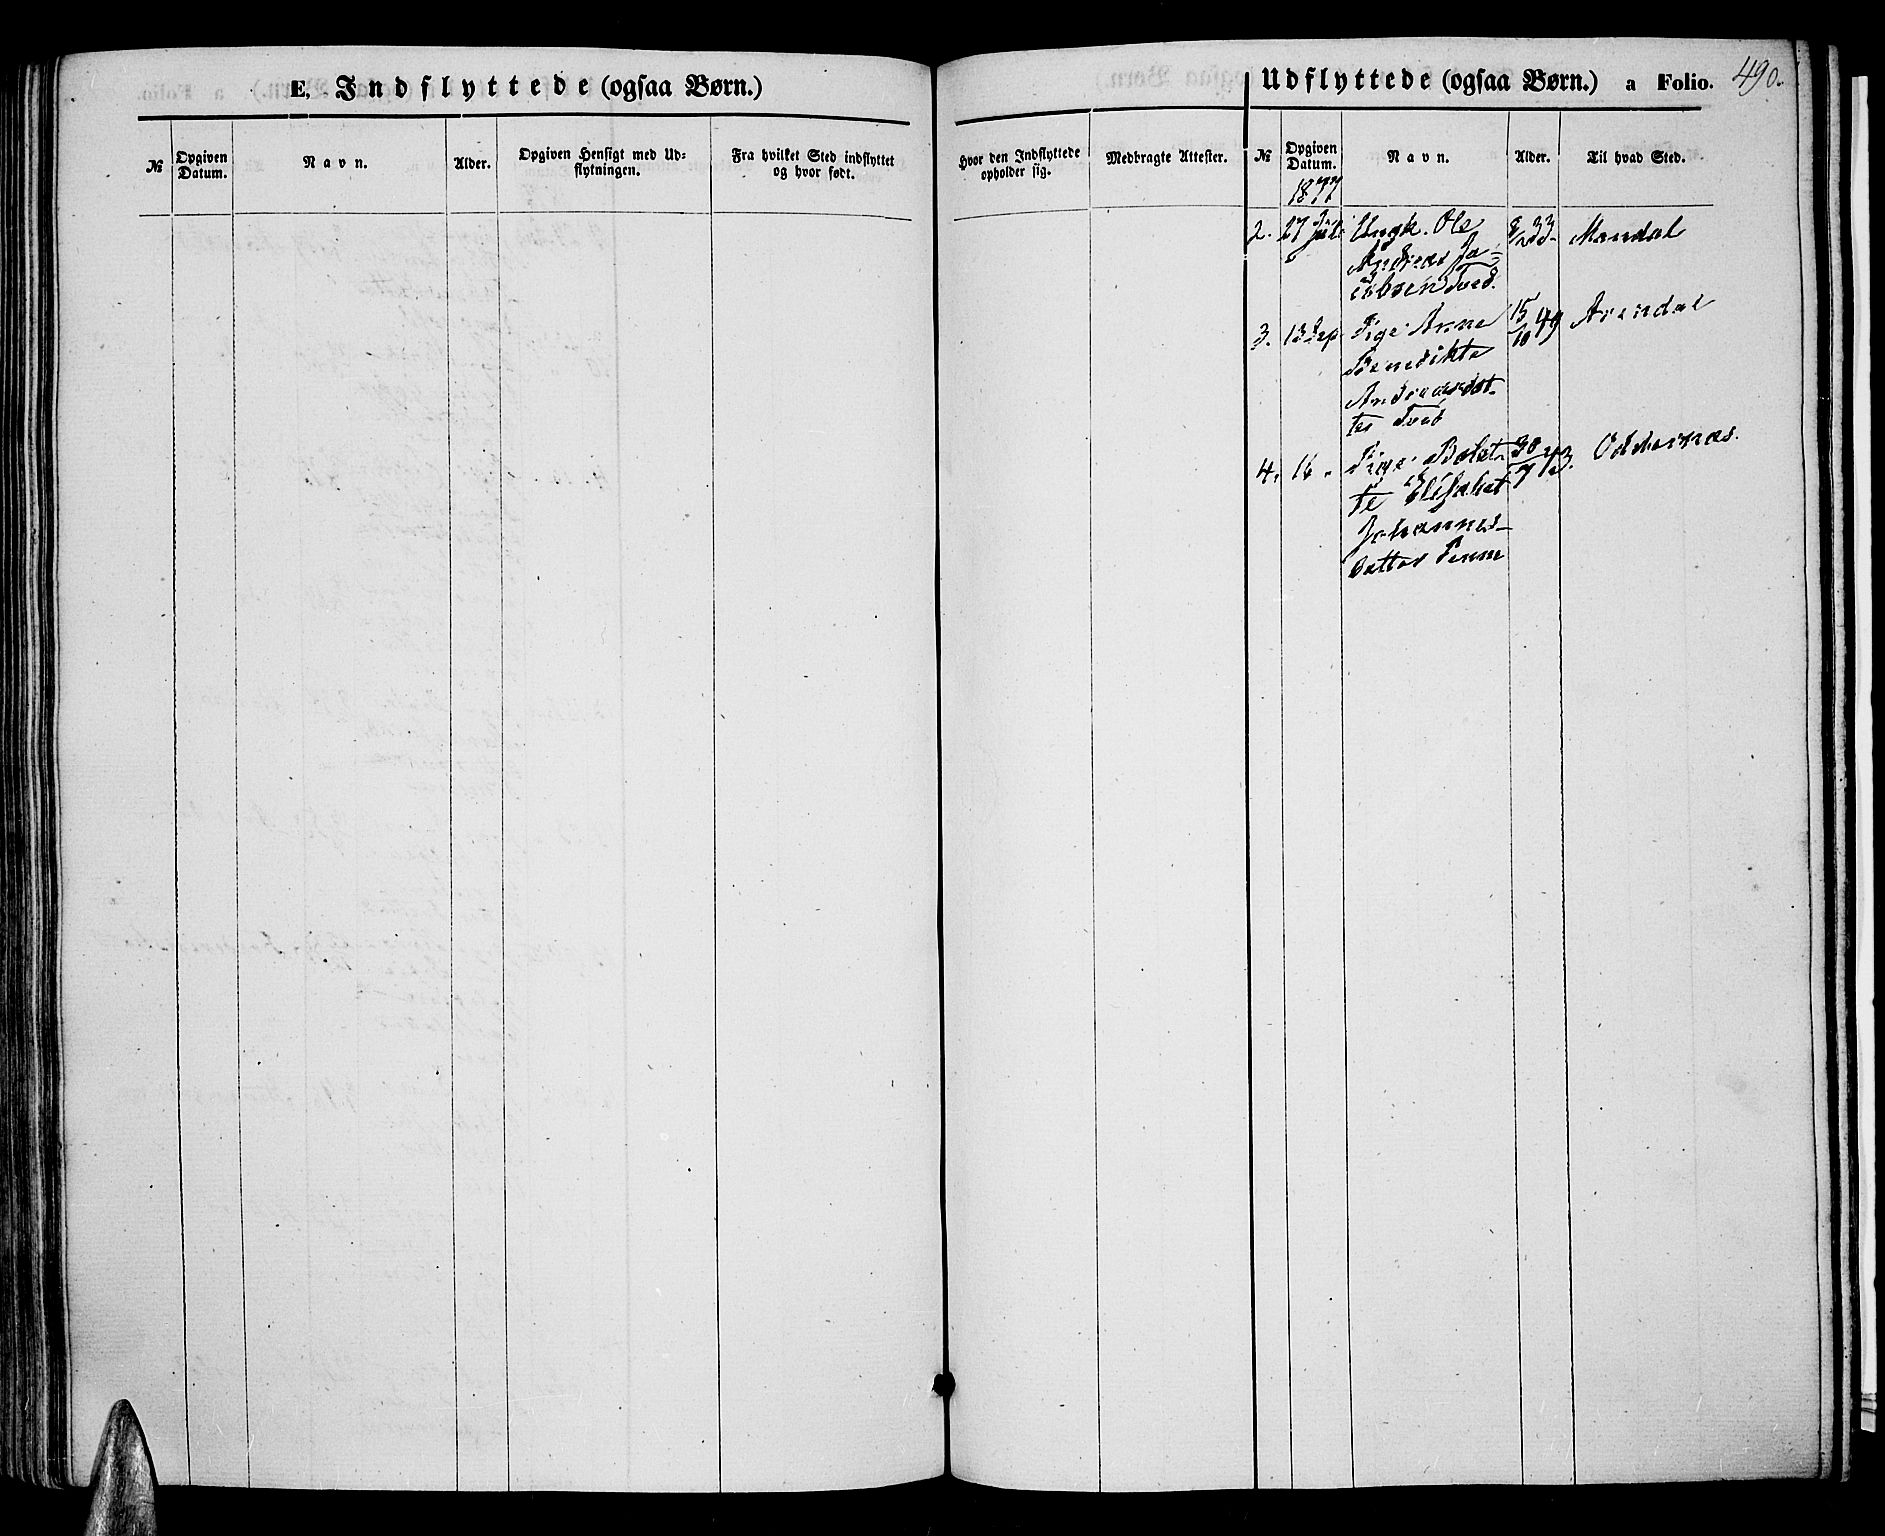 E, Indflyttede (ogsaa Børn.)
№
Opgiven Datum.
Navn.
Alder.
Opgiven Hensigt med Ud=
flytningen.
Fra hvilket Sted indflyttet
og hvor født.
Udflyttede (ogsaa Børn.) a Folio. 490.
Hvor den Indflyttede
opholder sig.
Medbragte Attester.
№
Opgiven
Datum.
Navn.
Alder.
Til hvad Sted.
1877
2. 27 Juli Ungk. Ole 33 Mandal
Andreas Ja=
cobsen Tved.
3. 13 Sep. Pige Anne 15/10 49 Arendal
Benedikte
Andreasdat-
ter Tved
4. 16 " Pige Bolet- 30/7 43. Oddernæs.
te Elisabet
Johannes-
datter Penne